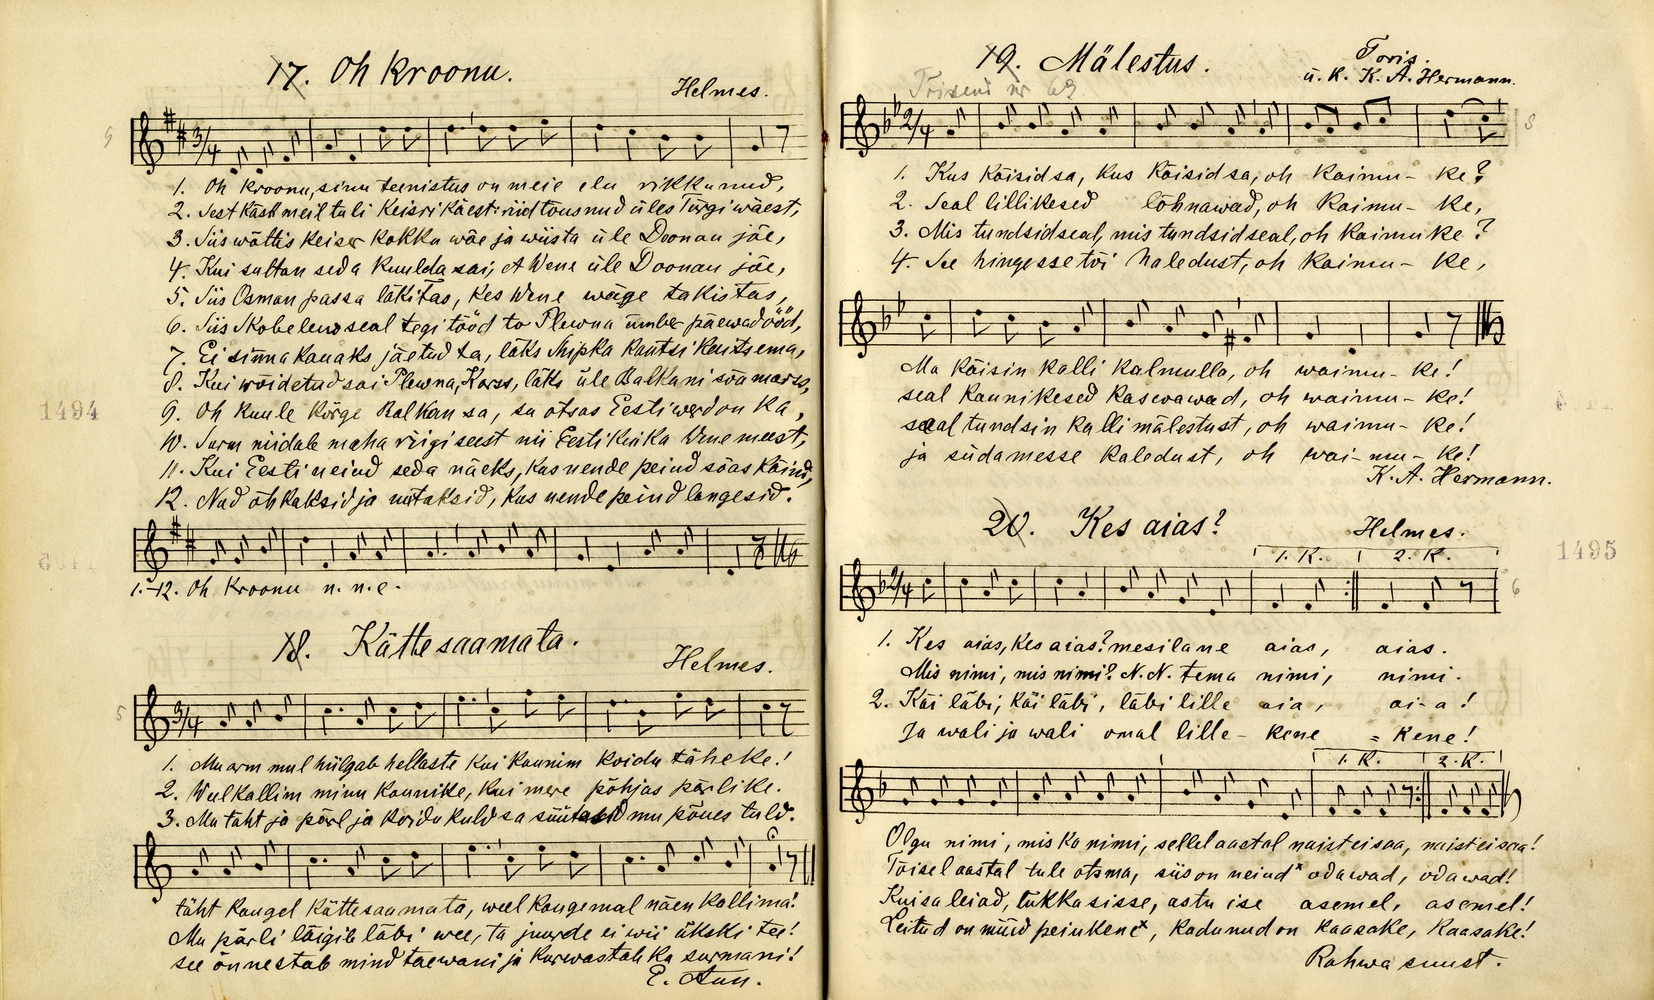 17. Oh kroonu.
Helmes.
1. Oh kroonu, sinu teenistus on meie elu rikkunud,
2. Sest käsk meil tuli Keisri käest: nüüd tõusnud üles Türgi wäest,
3. Siis wõttis Keiser kokku wäe ja wiista üle Doonau jõe,
4. Kui sultan seda kuulda sai, et Wene üle Doonau jõe,
5. Siis Osman passa läkitas, kes Wene wäge takistas,
6. Siis Skobelew seal tegi tööd to Plewna ümber päewad ööd,
7. Ei sinna kauaks jäetud ta, läks Shipka kantsi kaitsema,
8. Kui wõidetud sai Plewna, Karss, läks üle Balkani sõamarss,
9. Oh kuule kõrge Balkan sa, su otsas Eesti werd on ka,
10. Surm niidab maha riigi seest nii Eesti kui ka Wene meest,
11. Kui Eesti neiud seda näeks, kus nende peiud sõas käind,
12. Nad õhkaksid ja nutaksid, kus nende peiud langesid.
1.-12. Oh kroonu n. n. e.
18. Kättesaamata.
Helmes.
1. Mu arm mul hiilgab hellaste kui kaunim koidu täheke!
2. Weel kallim minu kaunike, kui mere põhjas pärlike.
3. Mu täht ja pärl ja koidu kuld sa süütasid mu põues tuld.
täht kaugel kättesaamata, weel kaugemal näen kallima!
Mu pärli läigib läbi wee, ta juurde ei wii ükski tee!
see õnnestab mind taewani ja kurwastab ka surmani!
E. Aun.
1494
19. Mälestus.
Toris.
ü. k. K. A. Hermann.
1. Kus käisid sa, kus käisid sa, oh kaimu- ke?
2. Seal lillikesed lõhnawad, oh kaimu- ke,
3. Mis tundsid seal, mis tundsid seal, oh kaimuke?
4. See hingesse tõi haledust, oh kaimu- ke,
Ma käisin kalli kalmulla, oh waimu- ke!
seal kaunikesed kaswawad, oh waimu- ke!
seal tundsin kalli mälestust, oh waimu- ke!
ja südamesse kaledust, oh wai- mu- ke!
K. A. Hermann.
20. Kes aias?
Helmes.
1. K. 2. K.
1. Kes aias, kes aias? mesilane aias, aias.
Mis nimi, mis nimi? N. N. tema nimi, nimi.
2. Käi läbi, käi läbi, läbi lille aia, ai-a!
Ja wali ja wali omal lille- kene = kene!
1. K. 2. K.
Olgu nimi, mis ka nimi, sellel aastal naist ei saa, naist ei saa!
Tõisel aastal tule otsma, siis on neiud x odawad, odawad!
Kui sa leiad, tukka sisse, astu ise asemel, asemel!
Leitud on nüüd peiukene x, kadunud on kaasake, kaasake!
Rahwa suust.
1495